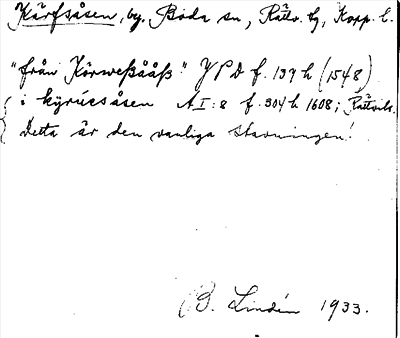 Kärfsåsen, by. Boda sn, Rättv. tg, Kopp. l.
"från Körweßååß" YPD f. 137 h (1548)
i kyrúesåsen AI:8 f. 304 h 1608; Rättviks.
Detta är den vanliga stavningen!
B. Lindén 1933.